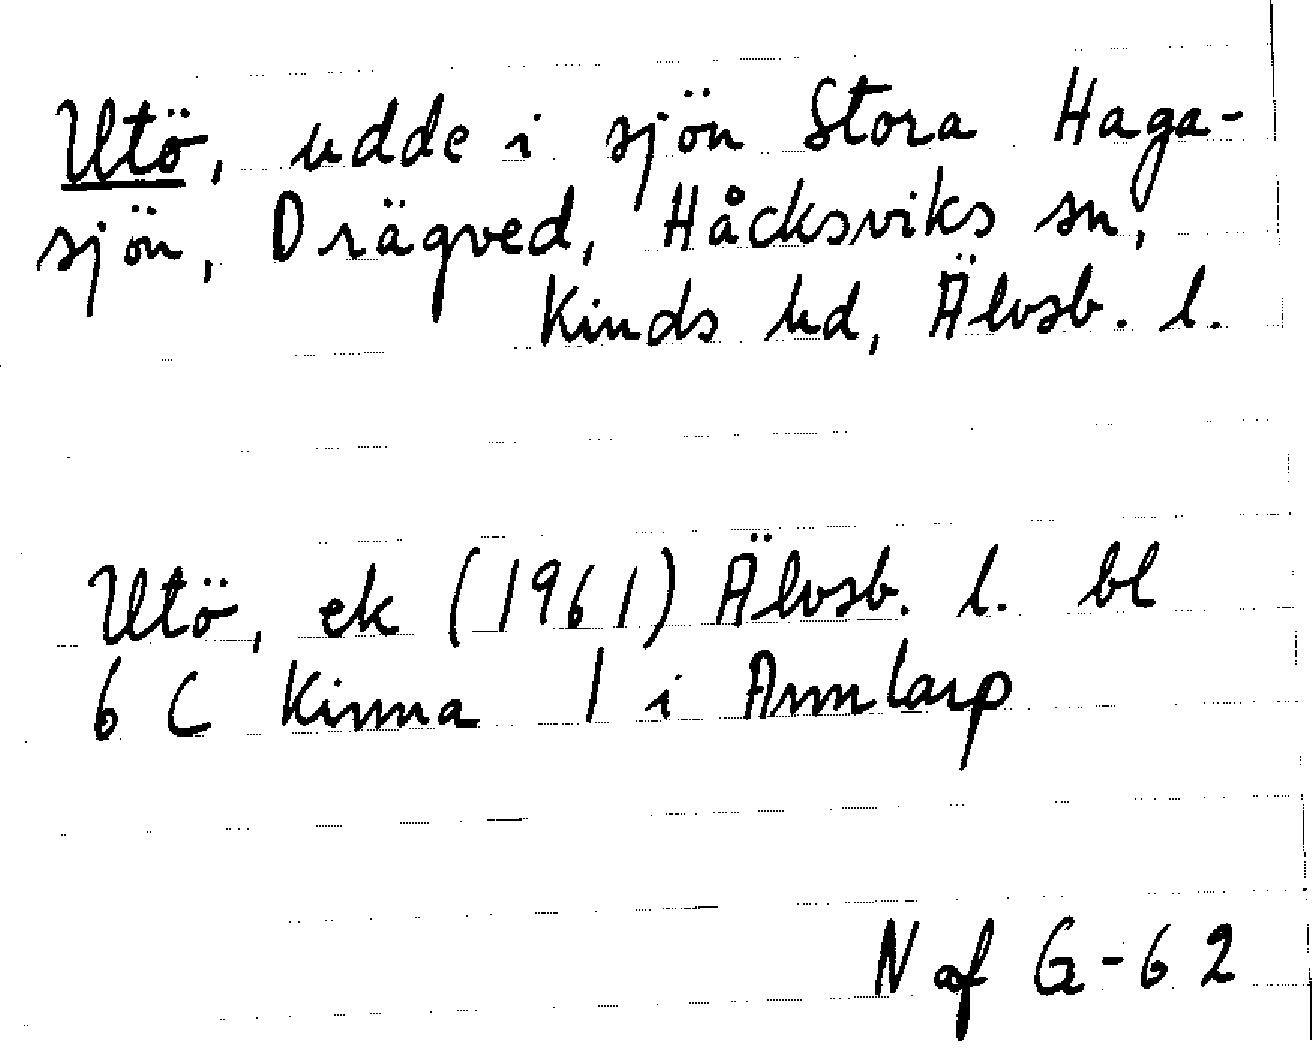 Utö, udde i sjön Stora Haga-
sjön, Drägved, Håcksviks sn,
Kinds hd, Älvsb. l.
Utö, ek (1961) Älvsb. l. bl
6 C Kinna 1 i Annlarp
N af G-62